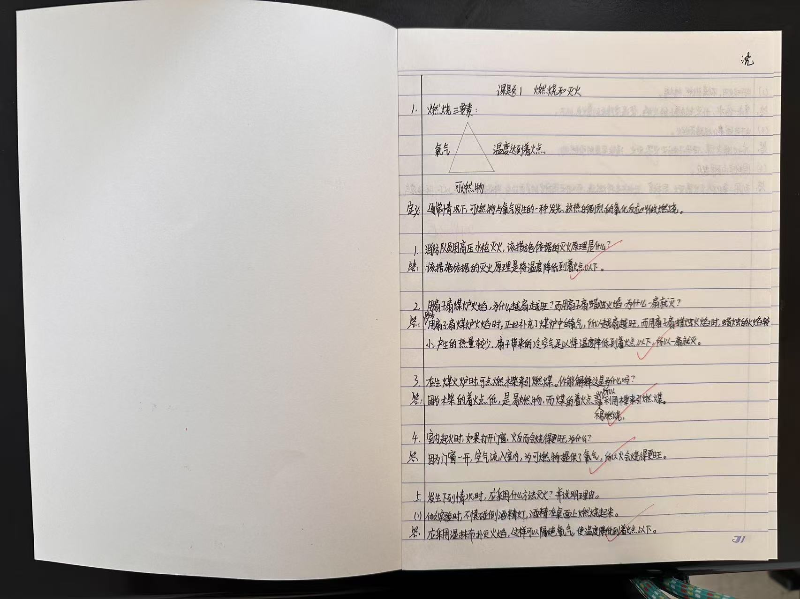 课题1 燃烧和灭火
1. 燃烧三要素:
氧气 温度达到着火点
可燃物
定义: 通常情况下,可燃物与氧气发生的一种发光、放热的剧烈的氧化反应叫做燃烧。
1. 消防队员用高压水枪灭火,该措施依据的灭火原理是什么?
答: 该措施依据的灭火原理是将温度降低到着火点以下。
2. 用扇子扇煤炉火焰,为什么越扇越旺?而用扇子扇蜡烛火焰,为什么一扇就灭?
答: 用扇子扇煤炉火焰时,正好补充了煤炉中的氧气,所以越扇越旺,而用扇子扇蜡烛火焰时,
小,产生的热量较少,扇子带来的冷空气足以将温度降低到着火点以下,所以一扇就灭。
3. 在生煤火炉时,可点燃木柴来引燃煤。你能解释这是为什么吗?
答: 因为木柴的着火点低,是易燃物,而煤的着火点 利用木柴来引燃煤。
4. 室内起火时,如果打开门窗,火反而会烧得更旺,为什么?
答: 因为门窗一开,空气流入室内,为可燃物提供了氧气,所以火会烧得更旺。
5. 发生下列情况时,应采用什么方法灭火?并说明理由。
(1) 做实验时,不慎碰倒酒精灯,酒精在桌面上燃烧起来。
答: 应采用湿抹布扑灭火焰,这样可以隔绝氧气,使温度降低到着火点以下。